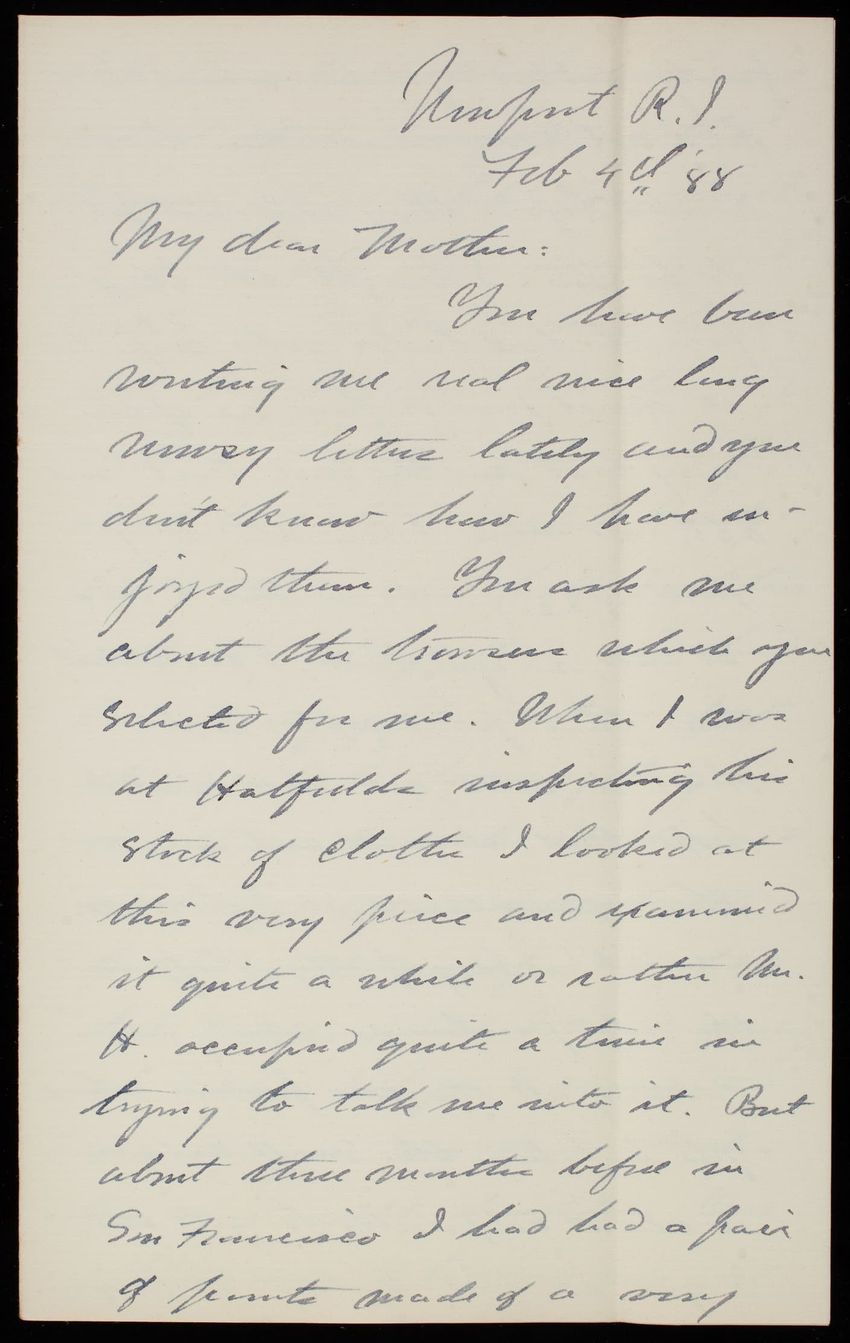 Newport R.I.
Feb 4th '88
My dear Mother:
You have been
writing me real nice long
newsy letters lately and you
don't know how I have en-
joyed them. You ask me
about the trowsers which you
selected for me. When I was
at Hatfields inspecting his
stock of clothes I looked at
this very piece and examined
it quite a while or rather Mr.
H. occupied quite a time in
trying to talk me into it. But
about three months before in
San Francisco I had had a pair
of pants made of a very